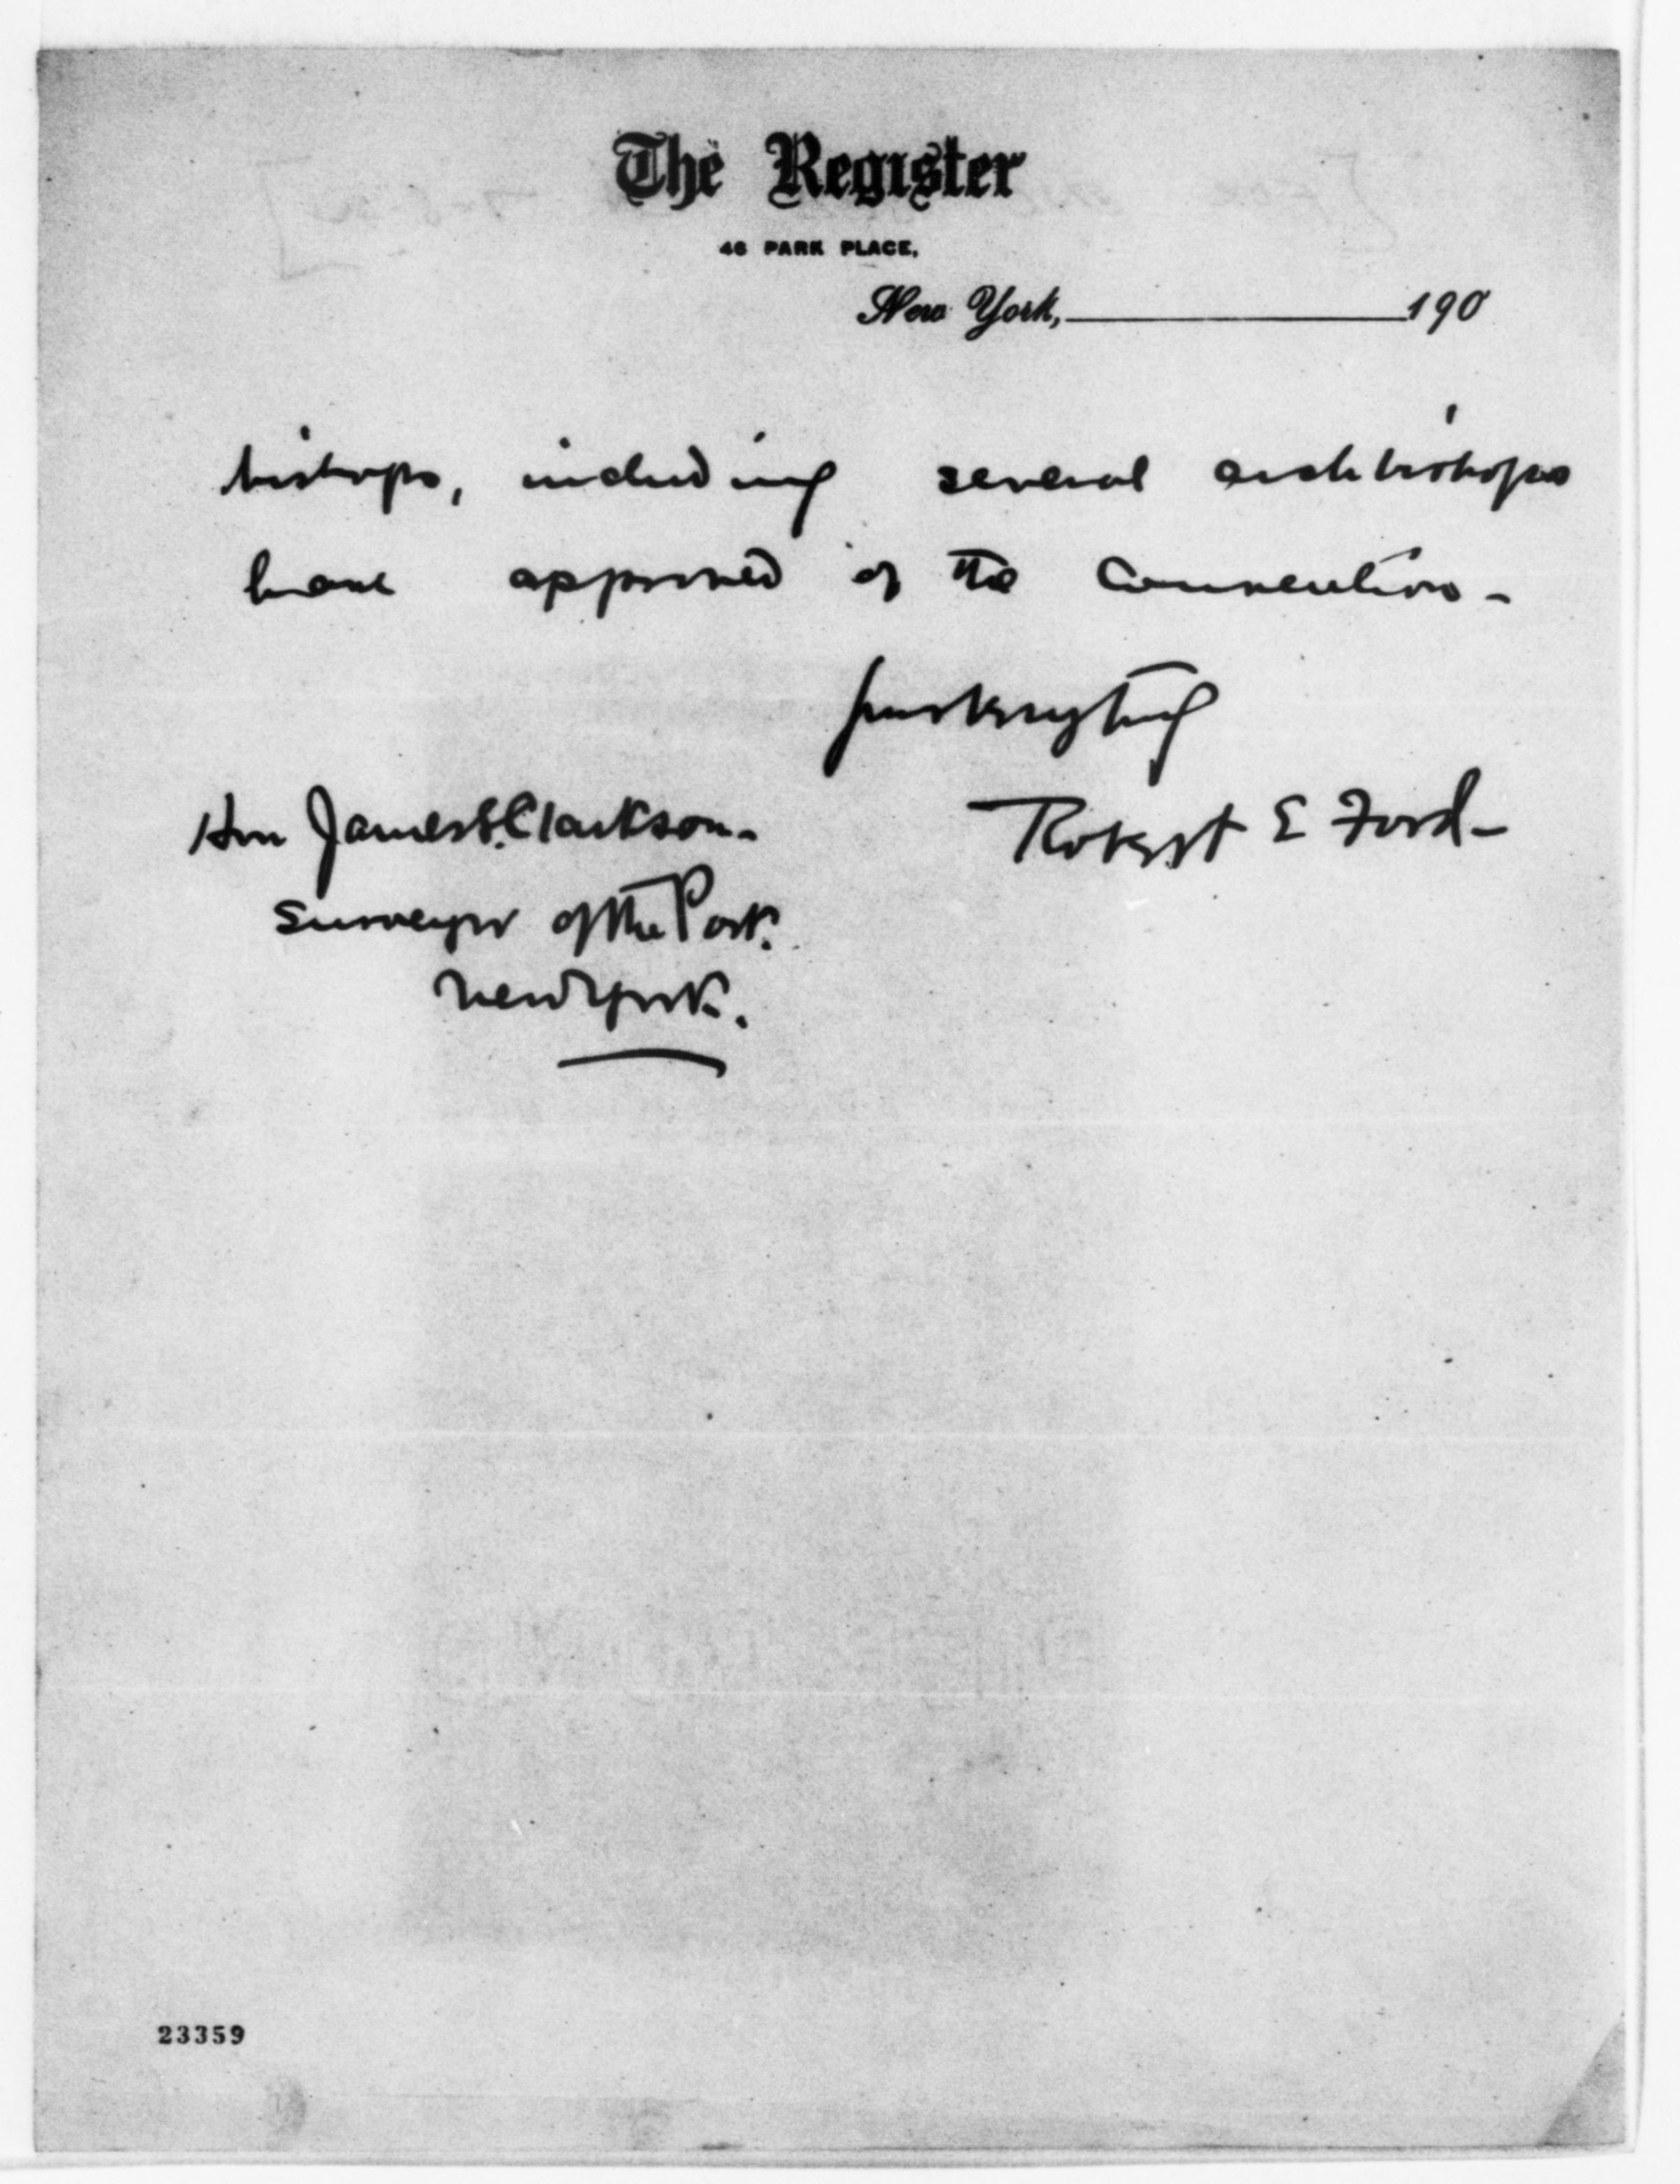 The Register
46 PARK PLACE,
New York, 190
bishops, including several archbishops
have approved of the Convention -
Yours very truly
Robert E Ford -
Hon James S. Clarkson -
Surveyor of the Port.
New York.
23359